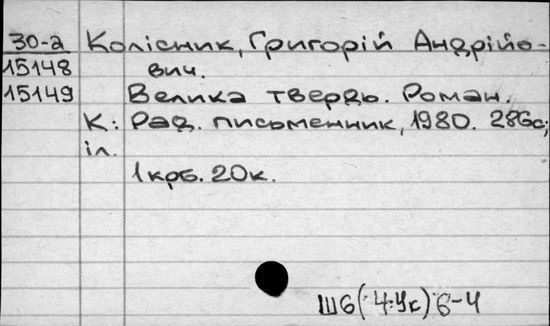 30-а Колісник, Григорій Андрійо-
15148 вич.
15149 Велика твердь. Роман.
К: Рад. письменник, 1980. 286с;
іл.
1крб. 20к.
Ш6(4.Ук)6-4